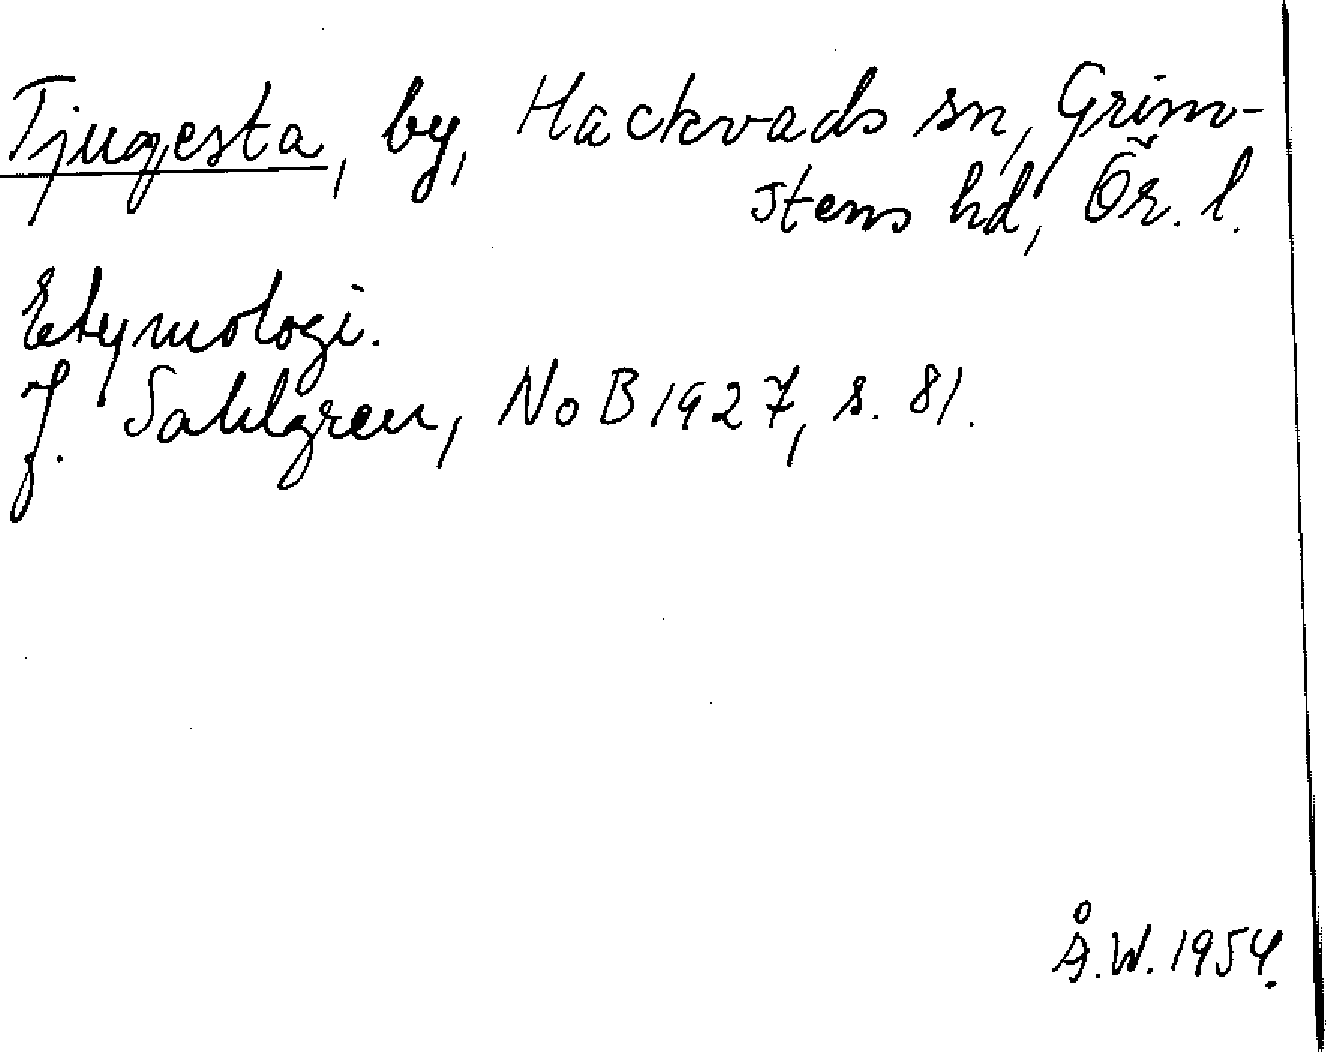 Tjugesta, by, Hackvads sn, Grim-
stens hd, Ör. l.
Etymologi.
J. Sahlgren, NoB 1927, s. 81.
Å.W. 1954.